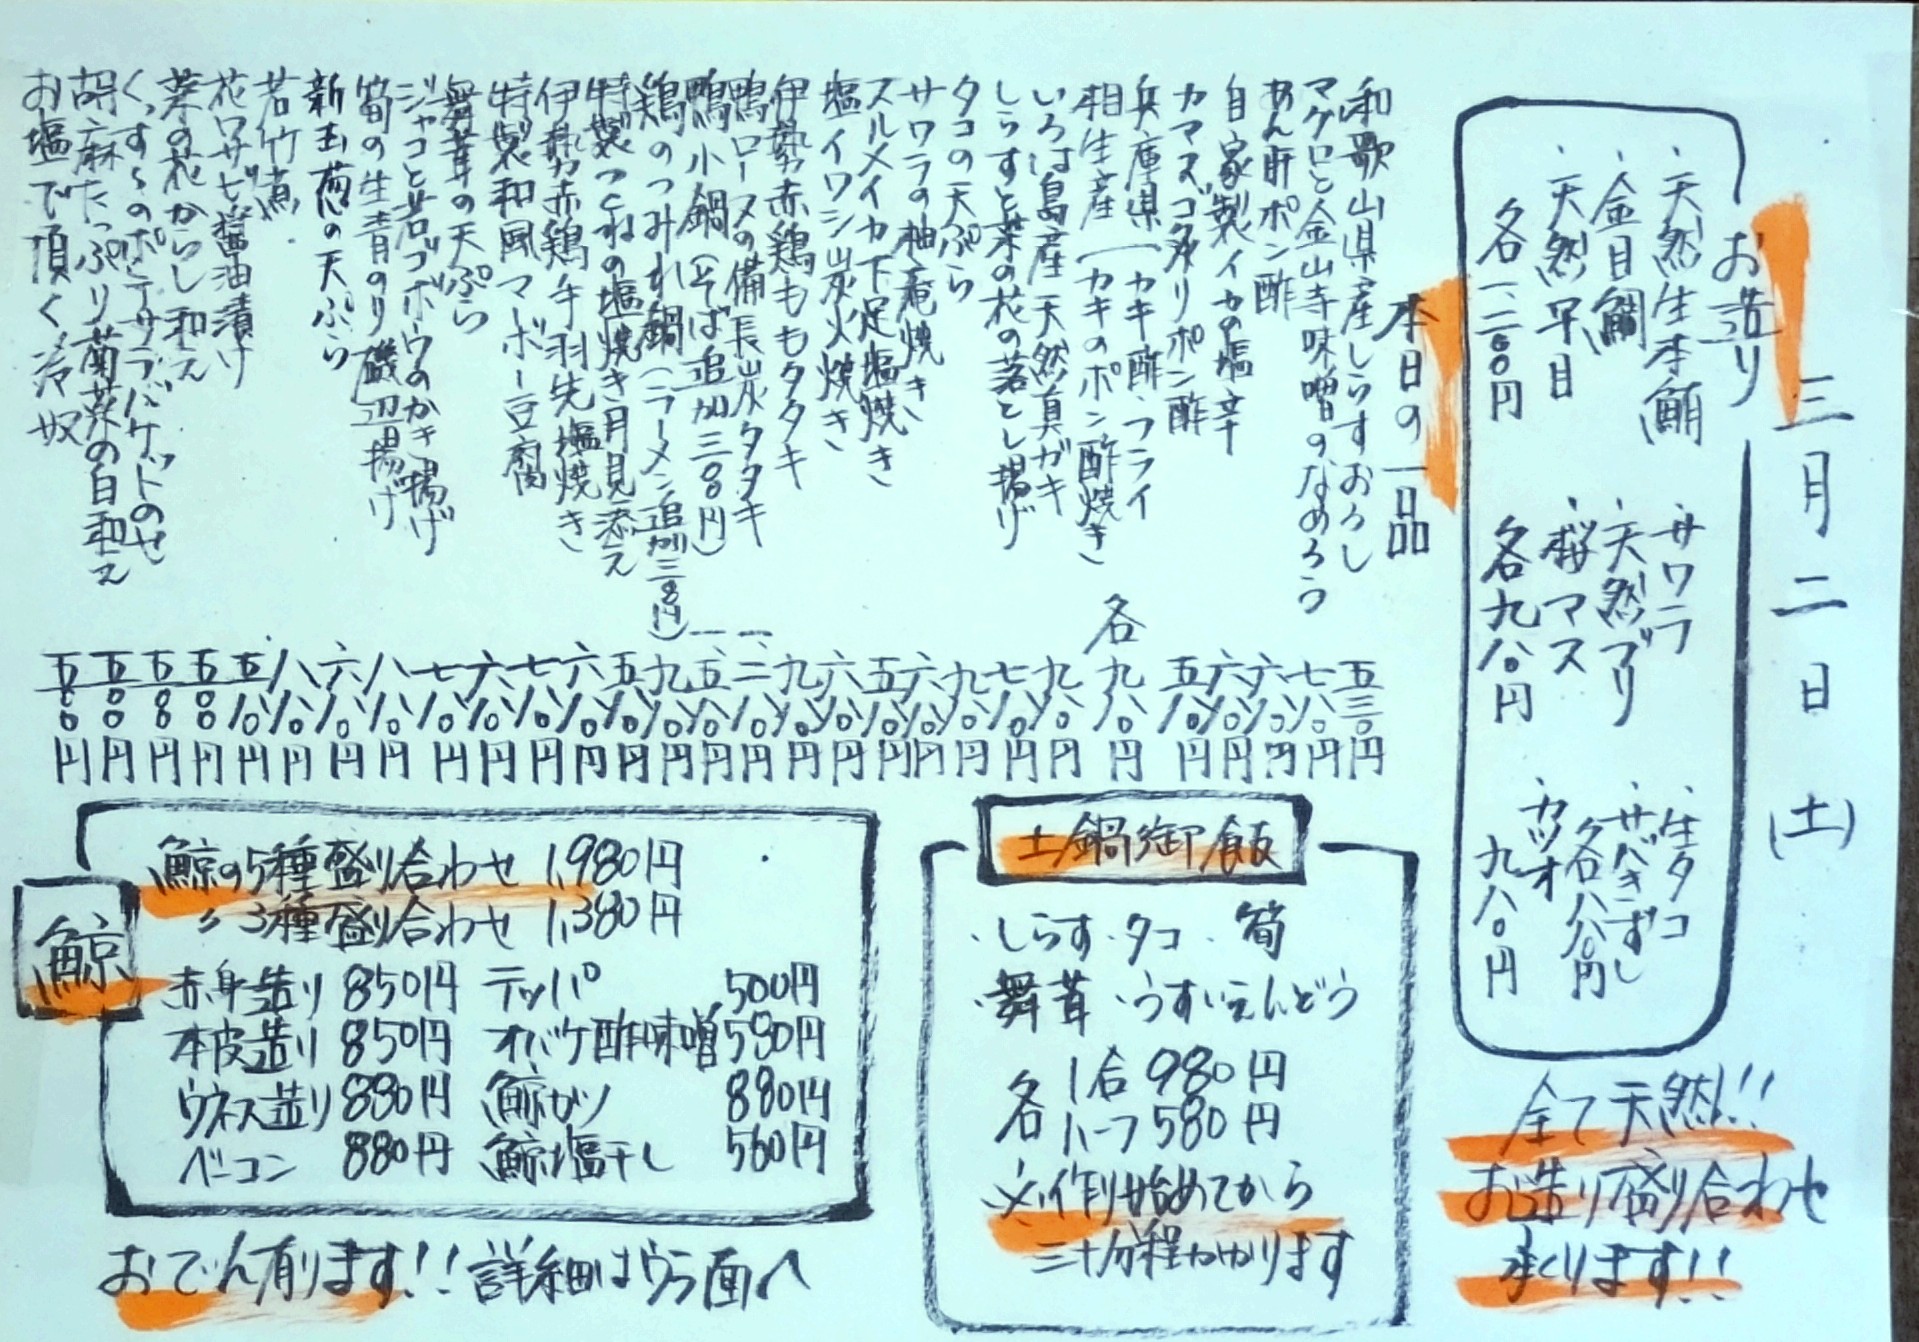 三月二日(土)
お造り
・天然生本鮪
・金目鯛
・天然平目
各一、二〇〇円
・サワラ
・天然ブリ
・桜マス
各九八〇円
・生タコ
・サバきずし
各八八〇円
・カツオ
九八〇円
全て天然!!
お造り盛り合わせ
承ります!!
本日の一品
和歌山県産しらすおろし 五三〇円
マグロと金山寺味噌のなめろう 七八〇円
あん肝ポン酢 六八〇円
自家製イカの塩辛 六八〇円
カマスゴ炙りポン酢 五八〇円
兵庫県 「カキ酢・フライ
相生産 「カキのポン酢焼き 各九八〇円
いろは島産天然真ガキ 九八〇円
しらすと菜の花の落とし揚げ 七八〇円
タコの天ぷら 九八〇円
サワラの柚庵焼き 六八〇円
スルメイカ下足塩焼き 五八〇円
塩イワシ炭火焼き 六八〇円
伊勢赤鶏ももタタキ 九八〇円
鴨ロースの備長炭タタキ 一、二八〇円
鴨小鍋(そば追加三〇〇円) 一、五八〇円
鶏のつみれ鍋(ラーメン追加三〇〇円) 九八〇円
特製つくねの塩焼き月見添え 五八〇円
伊勢赤鶏手羽先塩焼き 六八〇円
特製和風マーボー豆腐 七八〇円
舞茸の天ぷら 六八〇円
ジャコと若ゴボウのかき揚げ 七八〇円
筍の生青のり磯辺揚げ 八八〇円
新玉葱の天ぷら 六八〇円
若竹煮 八八〇円
花ワサビ醤油漬け 五八〇円
菜の花からし和え 五〇〇円
くんすーのポテサラバケットのせ 五〇〇円
胡麻たっぷり菊菜の白和え 五〇〇円
お塩で頂く冷奴 五〇〇円
土鍋御飯
・しらす・タコ・筍
・舞茸・うすいえんどう
各 1合 980円
ハーフ 580円
※作り始めてから
三十分程かかります
鯨
鯨の5種盛り合わせ 1,980円
〃 3種盛り合わせ 1,380円
赤身造り 850円 テッパ 500円
本皮造り 850円 オバケ酢味噌 590円
ウネス造り 880円 鯨カツ 880円
ベーコン 880円 鯨塩干し 560円
おでん有ります!!詳細はウラ面へ